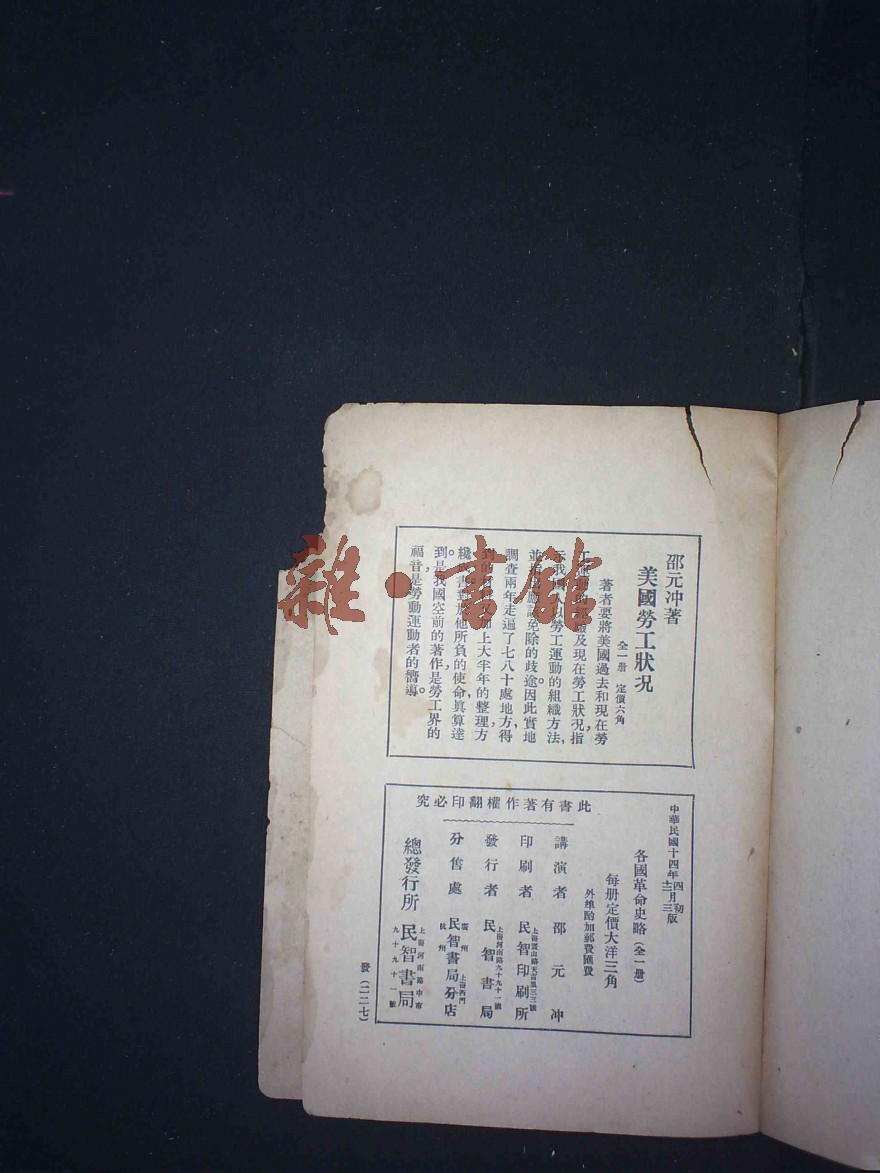 邵元冲著
美國勞工狀况
全一册　定價六角
著者要將美國過去和現在勞
及現在勞工狀況，指
勞工運動的組織方法，
免除的歧途。因此實地
調查兩年走遍了七八十處地方，得
加上大半年的整理方
纔 他所負的使命，眞算達
到。是我國空前的著作，是勞工界的
福音，是勞動運動者的嚮導。
中華民國十四年
四月初版
十二月三版
各國革命史略（全一册）
每册定價大洋三角
外埠酌加郵費匯費
此書有著作權翻印必究
講演者　邵元冲
印刷者　民智印刷所
發行者　上海河南路九十九十一號　民智書局
分售處　廣州　杭州　上海西門　民智書局分店
總發行所　上海河南路中市　九十九十一號　民智書局
發（二二七）
雜·書館